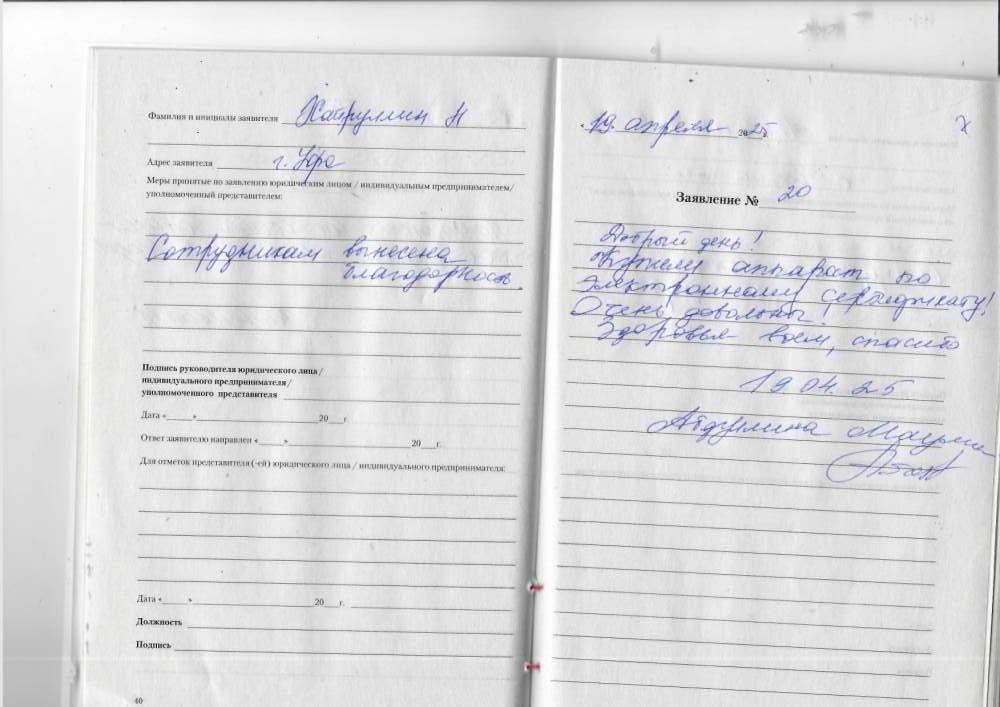 Фамилия и инициалы заявителя Хайруллин Н
Адрес заявителя г. Уфа
Меры принятые по заявлению юридическим лицом / индивидуальным предпринимателем/
уполномоченный представителем:
Сотрудникам вынесена
благодарность.
Подпись руководителя юридического лица /
индивидуального предпринимателя /
уполномоченного представителя
Дата «______»____________________________20___г.
Ответ заявителю направлен «______»____________________________20___г.
Для отметок представителя (-ей) юридического лица / индивидуального предпринимателя:
Дата «______»____________________________20___г.
Должность
Подпись
40
«19» апреля 2025
Заявление № 20
Добрый день!
аппарат по
электронному сертификату!
Очень довольны
Здоровья всем, спасибо
19.04.25